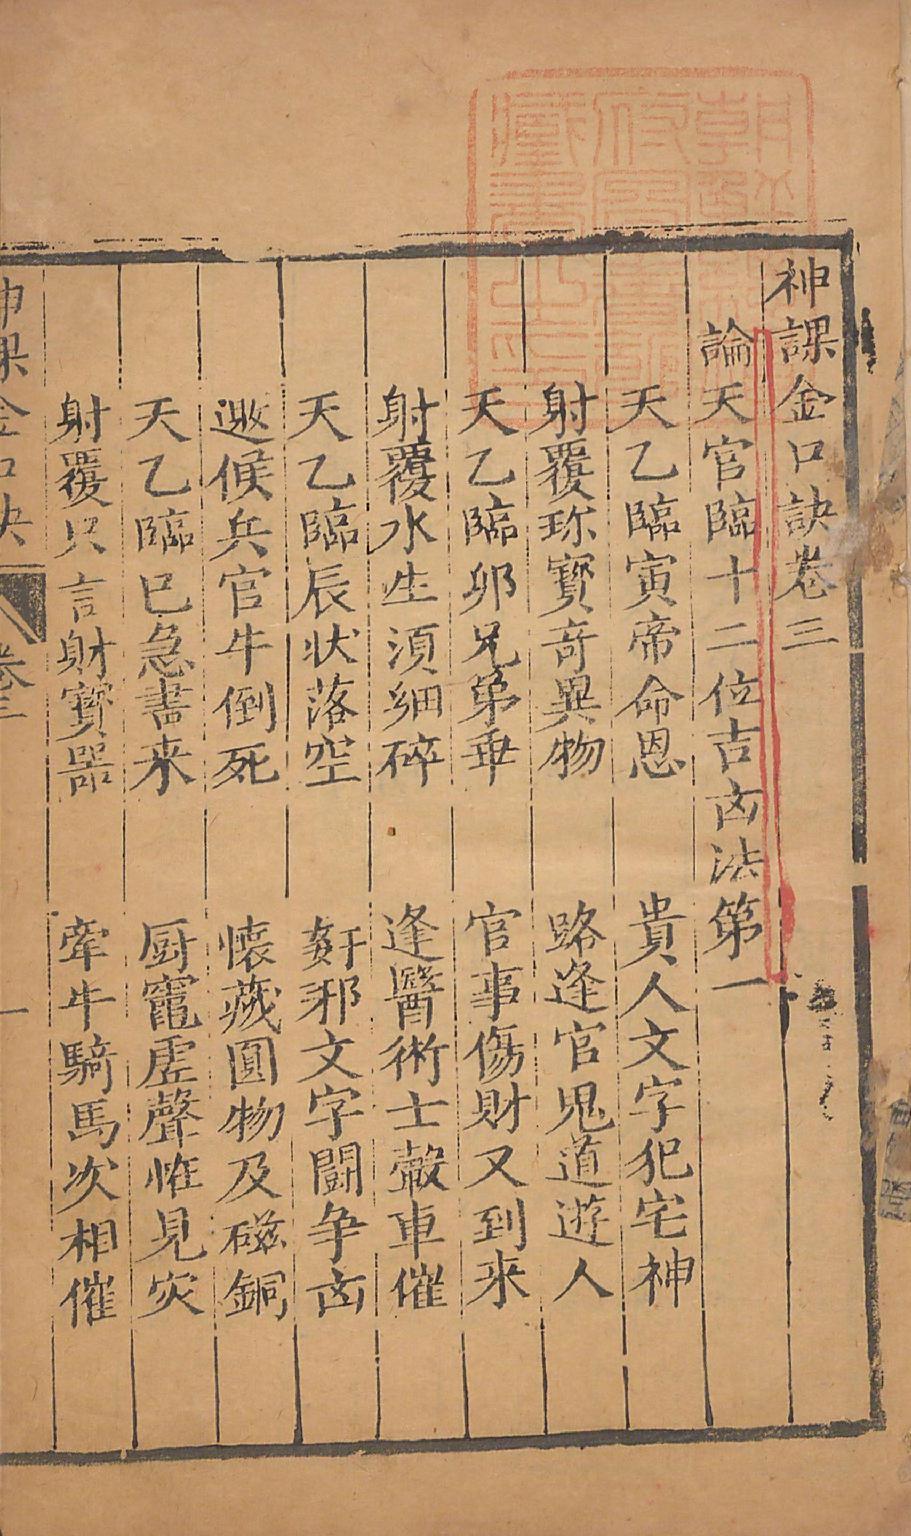 神課金口訣卷三
論天官臨十二位吉凶法第一
天乙臨寅帝命恩 貴人文字犯宅神
射覆珎寳奇異物 路逢官鬼道遊人
天乙臨卯兄弟乖 官事傷財又到来
射覆水生須細碎 逢醫術士轂車催
天乙臨辰状落空 姧邪文字鬪争凶
邀候兵官牛倒死 懐藏圓物及磁銅
天乙臨巳急書来 厨竈虚聲惟見灾
射覆只言財寳器 牽牛騎馬次相催
神課金口訣 卷三 一